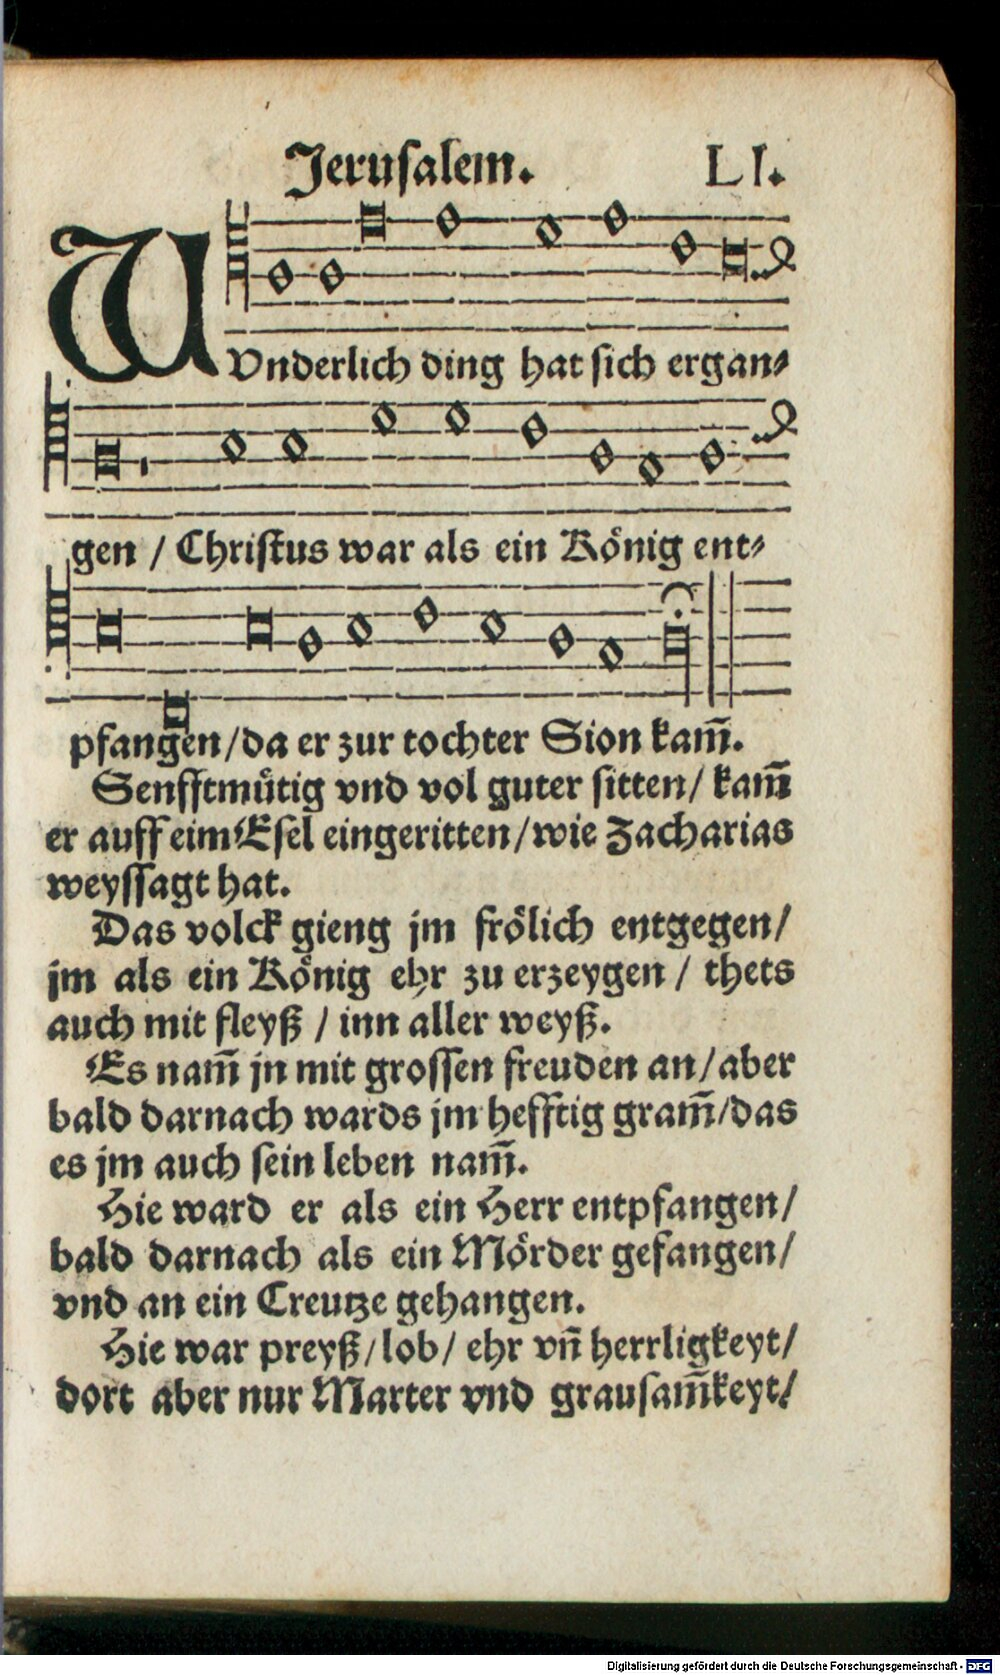 Jerusalem. LI.
WVnderlich ding hat sich ergan⸗
gen / Christus war als ein König ent⸗
pfangen/da er zur tochter Sion kam̃.
Senfftmütig vnd vol guter sitten/ kam̃
er auff eim Esel eingeritten/wie Zacharias
weyssagt hat.
Das volck gieng jm frölich entgegen/
jm als ein König ehr zu erzeygen / thets
auch mit fleyß / inn aller weyß.
Es nam̃ jn mit grossen freuden an/aber
bald darnach wards jm hefftig gram̃/das
es jm auch sein leben nam̃.
Hie ward er als ein Herr entpfangen/
bald darnach als ein Mörder gefangen/
vnd an ein Creutze gehangen.
Hie war preyß/lob/ ehr vñ herrligkeyt/
dort aber nur Marter vnd grausam̃keyt/
Digitalisierung gefördert durch die Deutsche Forschungsgemeinschaft - DFG